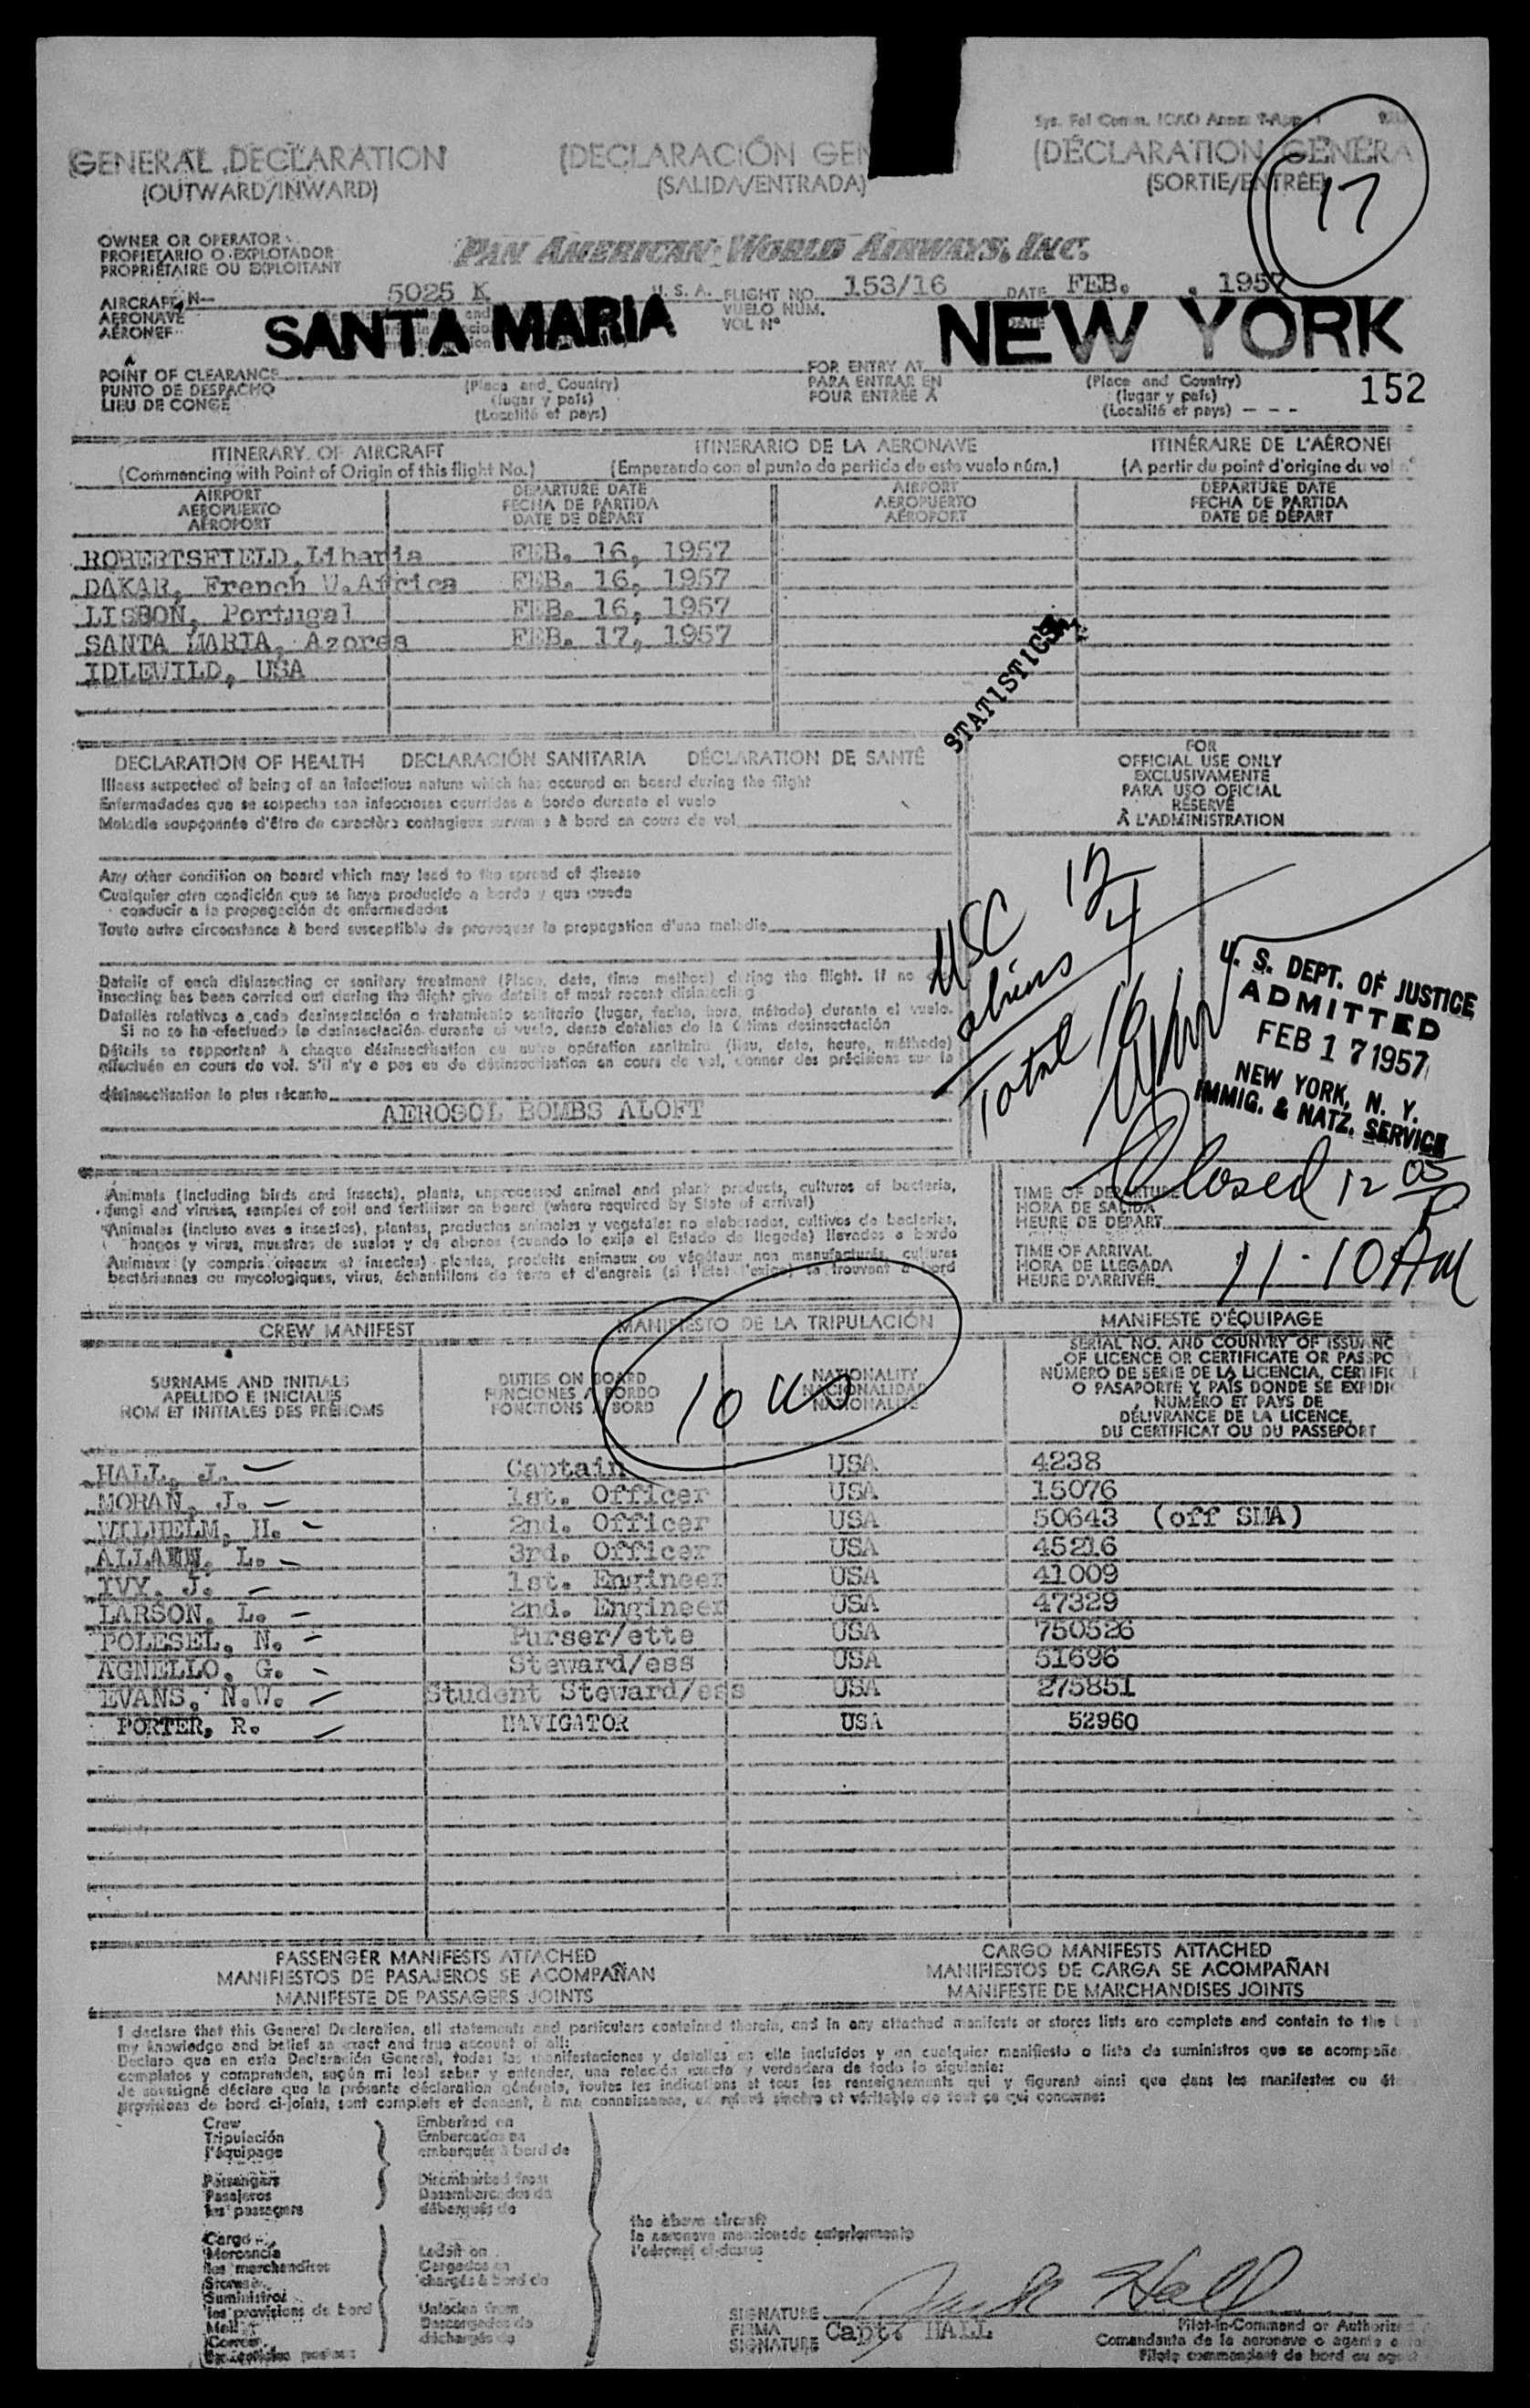 Sys. Fal Comm. ICAO Annex 9-App. 1
GENERAL DECLARATION (DECLARACIÓN GEN (DÉCLARATION GÉNÉRA
(OUTWARD/INWARD) (SALIDA/ENTRADA) (SORTIE/ENTRÉE)
17
OWNER OR OPERATOR
PROPIETARIO O EXPLOTADOR
PROPRIÉTAIRE OU EXPLOITANT
PAN AMERICAN WORLD AIRWAYS, INC.
AIRCRAFT N- 5025 K U. S. A. FLIGHT NO. 153/16 DATE FEB. , 1957
AERONAVE VUELO NÚM.
AÉRONEF VOL Nº
SANTA MARIA NEW YORK
POINT OF CLEARANCE FOR ENTRY AT
PUNTO DE DESPACHO (Place and Country) PARA ENTRAR EN (Place and Country)
LIEU DE CONGÉ (lugar y país) POUR ENTRÉE À (lugar y país)
(Localité et pays) (Localité et pays) - - -
152
ITINERARY OF AIRCRAFT ITINERARIO DE LA AERONAVE ITINÉRAIRE DE L'AÉRONEF
(Commencing with Point of Origin of this flight No.) (Empezando con el punto de partida de este vuelo núm.) (A partir du point d'origine du vol n°
AIRPORT DEPARTURE DATE AIRPORT DEPARTURE DATE
AEROPUERTO FECHA DE PARTIDA AEROPUERTO FECHA DE PARTIDA
AÉROPORT DATE DE DÉPART AÉROPORT DATE DE DÉPART
ROBERTSFIELD, Liberia FEB. 16, 1957
DAKAR, French W.Africa FEB. 16, 1957
LISBON, Portugal FEB. 16, 1957
SANTA MARIA, Azores FEB. 17, 1957
IDLEWILD, USA
STATISTICS
DECLARATION OF HEALTH DECLARACIÓN SANITARIA DÉCLARATION DE SANTÉ
Illness suspected of being of an infectious nature which has occured on board during the flight
Enfermedades que se sospecha son infecciosas ocurridas a bordo durante el vuelo
Maladie soupçonnée d'être de caractère contagieux survenue à bord en cours de vol
FOR
OFFICIAL USE ONLY
EXCLUSIVAMENTE
PARA USO OFICIAL
RÉSERVÉ
À L'ADMINISTRATION
Any other condition on board which may lead to the spread of disease
Cualquier otra condición que se haya producido a bordo y que pueda
conducir a la propagación de enfermedades
Toute autre circonstance à bord susceptible de provoquer la propagation d'une maladie
USC 12
aliens 4
Total 16
Details of each disinsecting or sanitary treatment (Place, date, time method) during the flight. If no
insecting has been carried out during the flight give details of most recent disinsecting
Detalles relativos a cada desinsectación o tratamiento sanitario (lugar, fecha, hora, método) durante el vuelo.
Si no se ha efectuado la desinsectación durante el vuelo, dense detalles de la última desinsectación
Détails se rapportant à chaque désinsectisation ou autre opération sanitaire (lieu, date, heure, méthode)
effectuée en cours de vol. S'il n'y a pas eu de désinsectisation en cours de vol, donner des précisions sur la
désinsectisation la plus récente
AEROSOL BOMBS ALOFT
U. S. DEPT. OF JUSTICE
ADMITTED
FEB 17 1957
NEW YORK, N. Y.
IMMIG. & NATZ. SERVICE
Closed 12 05 P
Animals (including birds and insects), plants, unprocessed animal and plant products, cultures of bacteria,
fungi and viruses, samples of soil and fertilizer on board (where required by State of arrival)
Animales (incluso aves e insectos), plantas, productos animales y vegetales no elaborados, cultivos de bacterias,
hongos y virus, muestras de suelos y de abonos (cuando lo exija el Estado de llegada) llevados a bordo
Animaux (y compris oiseaux et insectes) plantes, produits animaux ou végétaux non manufacturés, cultures
bactériennes ou mycologiques, virus, échantillons de terre et d'engrais (si l'État l'exige) se trouvant à bord
TIME OF DEPARTURE
HORA DE SALIDA
HEURE DE DÉPART
TIME OF ARRIVAL
HORA DE LLEGADA
HEURE D'ARRIVÉE
11-10 AM
CREW MANIFEST MANIFIESTO DE LA TRIPULACIÓN MANIFESTE D'ÉQUIPAGE
SURNAME AND INITIALS
APELLIDO E INICIALES
NOM ET INITIALES DES PRÉNOMS
DUTIES ON BOARD
FUNCIONES A BORDO
FONCTIONS À BORD
NATIONALITY
NACIONALIDAD
NATIONALITÉ
SERIAL NO. AND COUNTRY OF ISSUANC
OF LICENCE OR CERTIFICATE OR PASSPO
NÚMERO DE SERIE DE LA LICENCIA, CERTIFIC
O PASAPORTE Y PAÍS DONDE SE EXPIDI
NUMÉRO ET PAYS DE
DÉLIVRANCE DE LA LICENCE,
DU CERTIFICAT OU DU PASSEPORT
10 US
HALL, J. Captain USA 4238
MORAN, J. 1st. Officer USA 15076
WILHELM, H. 2nd. Officer USA 50643 (off SMA)
ALLAEN, L. 3rd. Officer USA 45216
IVY, J. 1st. Engineer USA 41009
LARSON, L. 2nd. Engineer USA 47329
POLESEL, N. Purser/ette USA 750526
AGNELLO, G. Steward/ess USA 51696
EVANS, N.W. Student Steward/ess USA 275851
PORTER, R. NAVIGATOR USA 52960
PASSENGER MANIFESTS ATTACHED CARGO MANIFESTS ATTACHED
MANIFIESTOS DE PASAJEROS SE ACOMPAÑAN MANIFIESTOS DE CARGA SE ACOMPAÑAN
MANIFESTE DE PASSAGERS JOINTS MANIFESTE DE MARCHANDISES JOINTS
I declare that this General Declaration, all statements and particulars contained therein, and in any attached manifests or stores lists are complete and contain to the
my knowledge and belief an exact and true account of all:
Declaro que en esta Declaración General, todas las manifestaciones y detalles en ella incluidos y en cualquier manifiesto o lista de suministros que se acompaña
completos y comprenden, según mi leal saber y entender, una relación exacta y verdadera de todo lo siguiente:
Je soussigné déclare que la présente déclaration générale, toutes les indications et tous les renseignements qui y figurent ainsi que dans les manifestes ou
provisions de bord ci-joints, sont complets et donnent, à ma connaissance, un relevé sincère et véritable de tout ce qui concerne:
Crew Embarked on
Tripulación Embarcados en
l'équipage embarqués à bord de
Passengers Disembarked from
Pasajeros Desembarcados de
les passagers débarqués de
the above aircraft
la aeronave mencionada anteriormente
l'aéronef ci-dessus
Cargo
Mercancía Laden on
les marchandises Cargados en
Stores chargés à bord de
Suministros
les provisions de bord Unladen from
Mail Descargados de
Correo déchargés de
SIGNATURE Jack Hall
FIRMA Capt. HALL
SIGNATURE
Pilot-in-Command or Authorized
Comandante de la aeronave o agente
Pilote commandant de bord ou